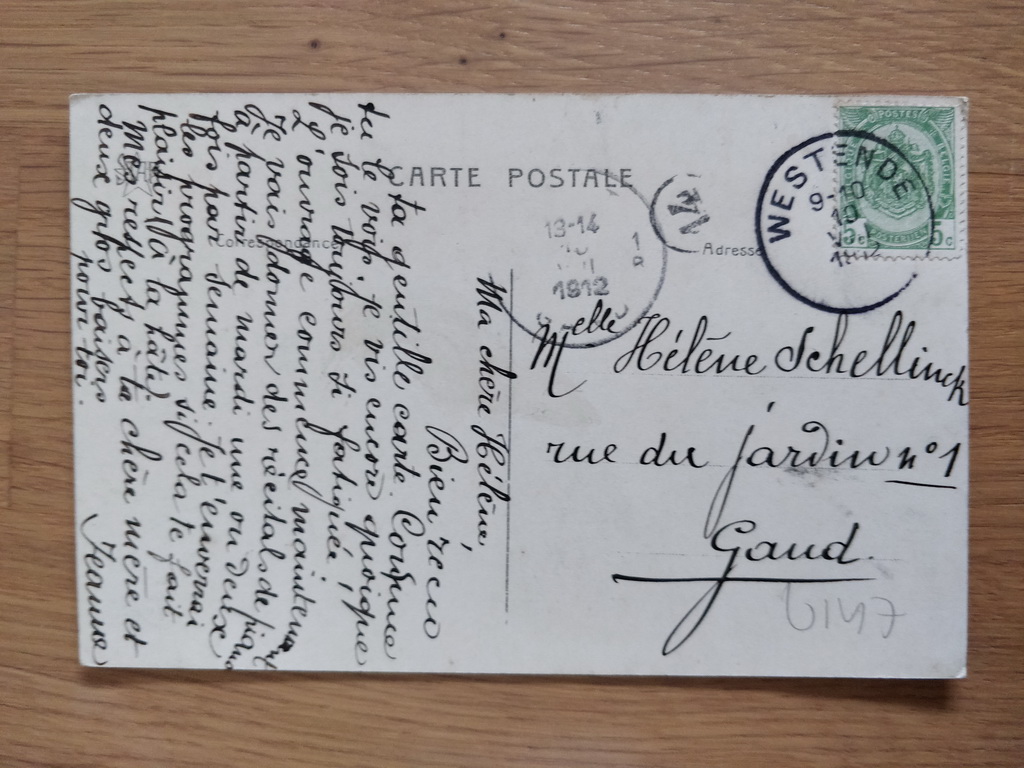 CARTE POSTALE
Correspondance
Adresse
WESTENDE
9-10
13-14
1912
POSTES
5c
Melle Hélène Schellinck
rue du jardin n°1
Gand.
Ma chère Hélène,
Bien reçu
ta gentille carte. Comme
tu le vois, je vis encore quoique
je sois toujours si fatiguée,
L'ouvrage commence maintenant
Je vais donner des récitals de piano
à partir de mardi une ou deux
fois par semaine. Je t'enverrai
les programmes si cela te fait
plaisir. (à la hâte)
Mes respects à ta chère mère et
deux gros baisers
pour toi.
Jeanne